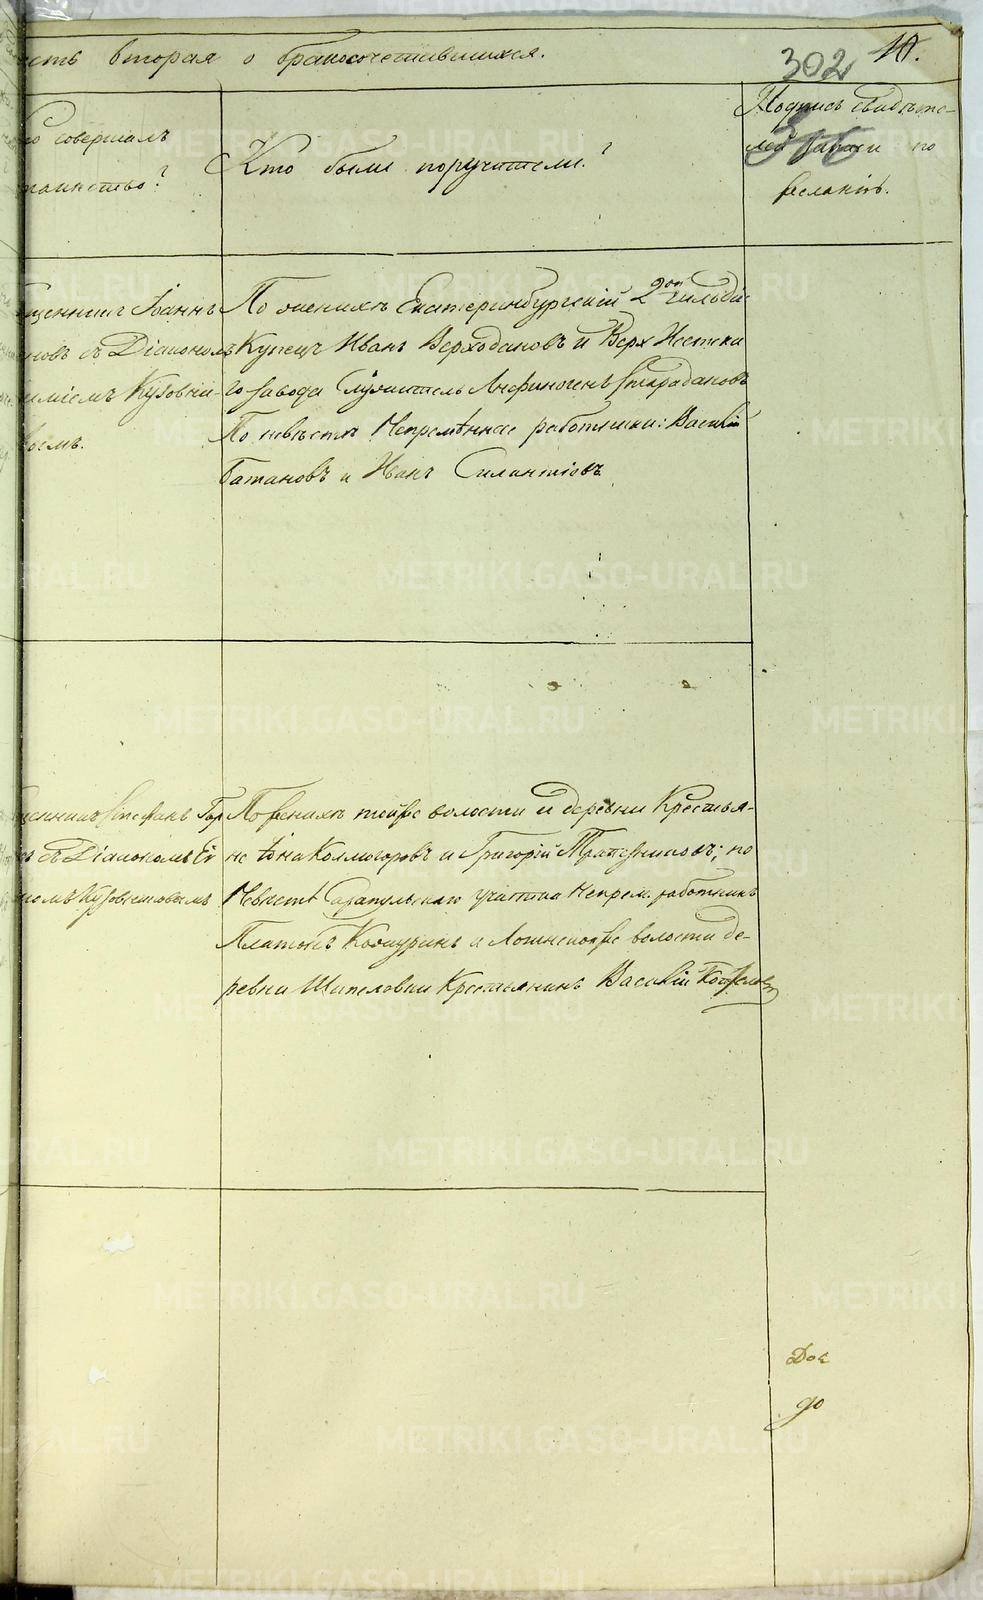 сть вторая о бракосочетавшихся.
302 10.
316
то совершалъ
таинство?
Кто были поручители?
Подпись свидѣте-
лей записи по
желанію.
щенникъ Іоаннъ
новъ съ Діакономъ
Кузовни-
вымъ.
По женихѣ Екатеринбургскій 2ой гильдіи
Купецъ Иванъ Верходановъ и Верх Исетска
го завода Служитель Анфиногенъ Старадановъ
По невѣстѣ Непремѣнные работники: Василій
Батановъ и Иванъ Силантіовъ
щенникъ Стефанъ
съ Діакономъ Ев
Кузовниковымъ
По женихѣ тойже волости и деревни Крестья-
не Іона Колмогоровъ и Григорій Трапезниковъ; по
Невѣстѣ Сарапульскаго участка Непрем. работникъ
Платонъ Кошуринъ и волости де-
ревни Шипеловки Крестьянинъ Василій
Док
до
METRIKI.GASO-URAL.RU